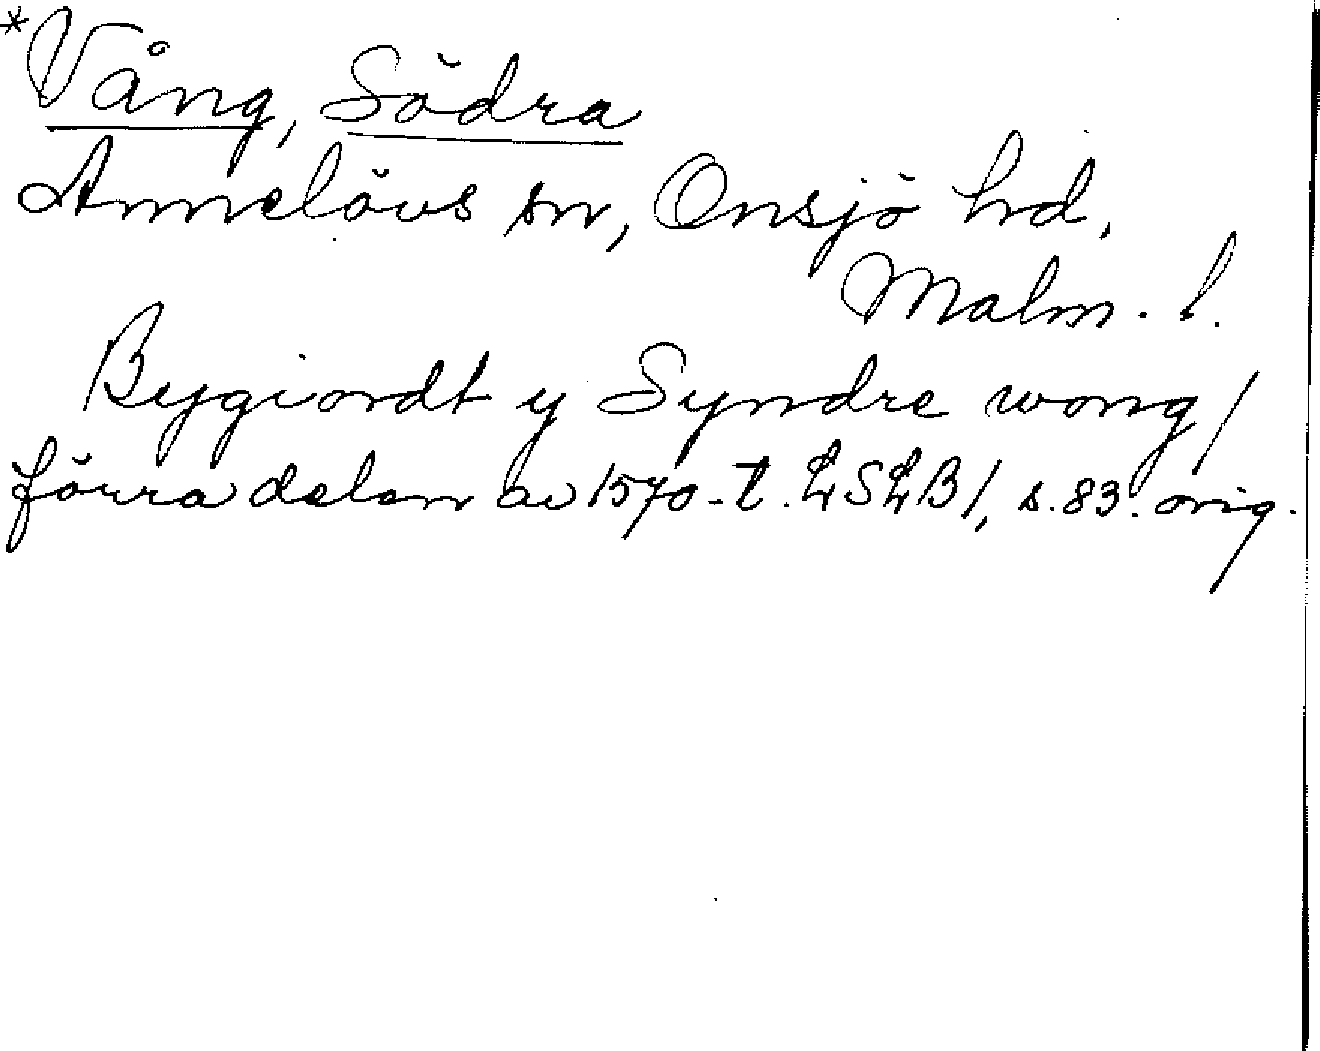 *Vång, Södra
Annelövs sn, Onsjö hd,
Malm. l.
Bygiordt y Syndre wong/
förra delen av 1570-t. LSLB/, s. 83. orig.